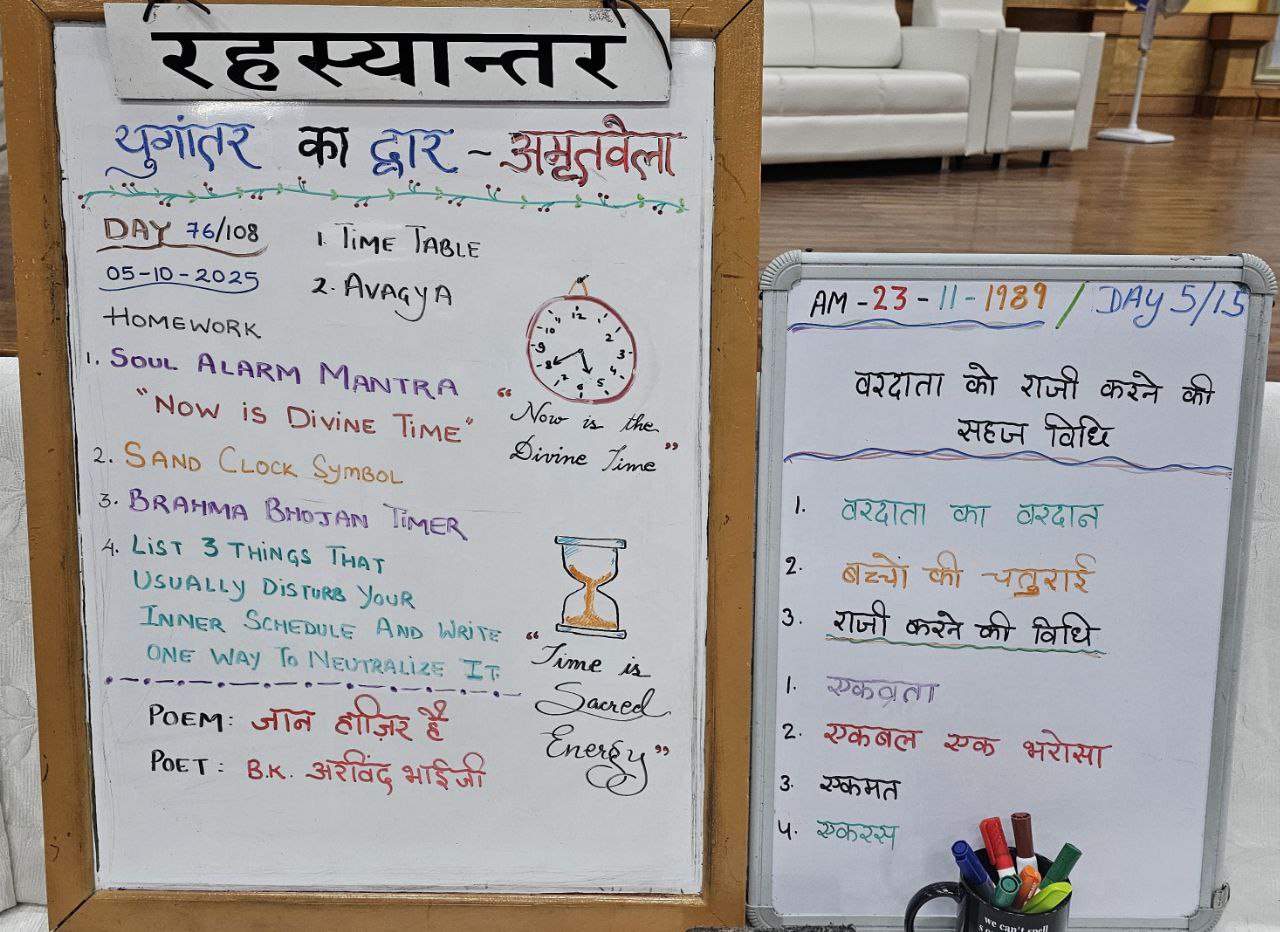 रहस्यान्तर
युगांतर का द्वार - अमृतवेला
DAY 76/108
05-10-2025
1. TIME TABLE
2. AVAGYA
HOMEWORK
1. SOUL ALARM MANTRA
"NOW IS DIVINE TIME"
2. SAND CLOCK SYMBOL
3. BRAHMA BHOJAN TIMER
4. LIST 3 THINGS THAT
USUALLY DISTURB YOUR
INNER SCHEDULE AND WRITE
ONE WAY TO NEUTRALIZE IT.
12
2
3
4
5
6
7
8
9
10
"Now is the
Divine Time"
"Time is
Sacred
Energy"
POEM: जान हाज़िर है
POET: B.K. अरविंद भाईजी
AM - 23 - 11 - 1989 / DAY 5/15
वरदाता को राजी करने की
सहज विधि
1. वरदाता का वरदान
2. बच्चों की चतुराई
3. राजी करने की विधि
1. एकव्रता
2. एकबल एक भरोसा
3. एकमत
4. एकरस
we can't spell